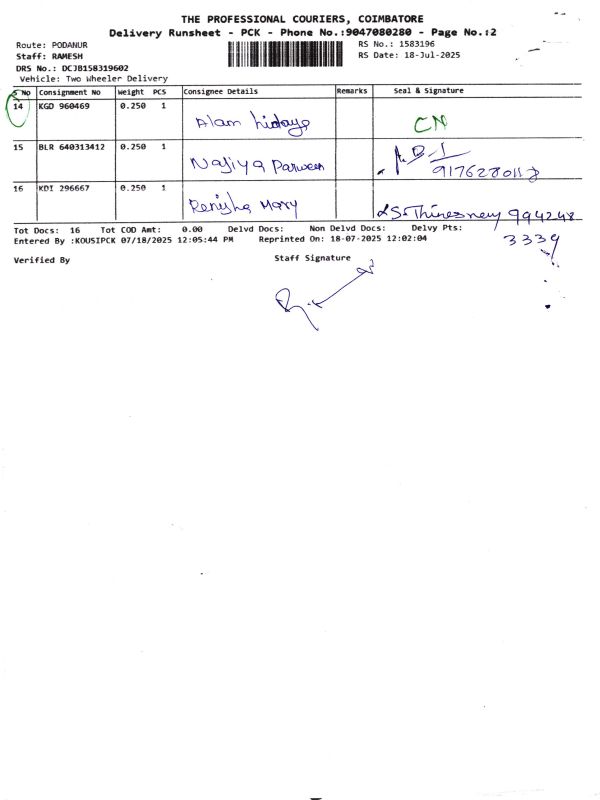 THE PROFESSIONAL COURIERS, COIMBATORE
Delivery Runsheet - PCK - Phone No.:9047080280 - Page No.:2
Route: PODANUR RS No.: 1583196
Staff: RAMESH RS Date: 18-Jul-2025
DRS No.: DCJB158319602
Vehicle: Two Wheeler Delivery
S No Consignment No Weight PCS Consignee Details Remarks Seal & Signature
14 KGD 960469 0.250 1
Alam hidaya CN
15 BLR 640313412 0.250 1
Najiya Parween
16 KDI 296667 0.250 1
Renisha Mary 994248
Tot Docs: 16 Tot COD Amt: 0.00 Delvd Docs: Non Delvd Docs: Delvy Pts:
3339
Entered By :KOUSIPCK 07/18/2025 12:05:44 PM Reprinted On: 18-07-2025 12:02:04
Verified By Staff Signature